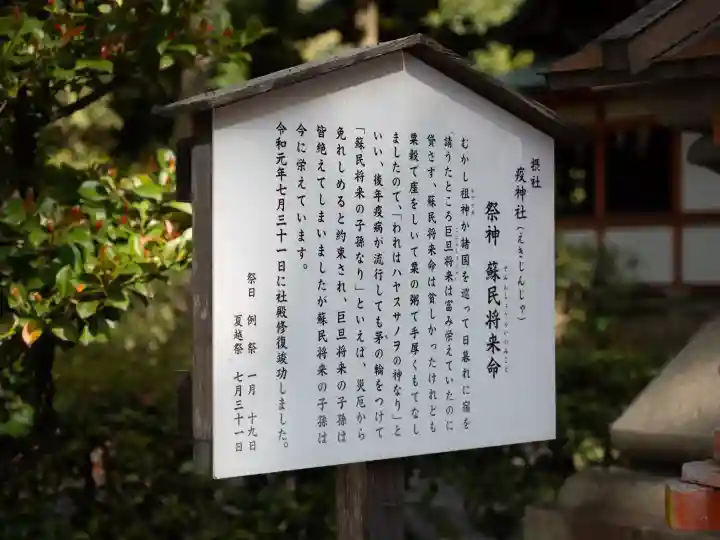 摂社
疫神社(えきじんじゃ)
祭神 蘇民将来命
そみんしょうらいのみこと
むかし祖神が諸国を巡って日暮れに宿を
請うたところ巨旦将来は富み栄えていたのに
貸さず、蘇民将来命は貧しかったけれども
粟殻で座をしいて粟の粥で手厚くもてなし
ましたので、「われはハヤスサノヲの神なり」と
いい、後年疫病が流行しても茅の輪をつけて
「蘇民将来の子孫なり」といえば、災厄から
免れしめると約束され、巨旦将来の子孫は
皆絶えてしまいましたが蘇民将来の子孫は
今に栄えています。
令和元年七月三十一日に社殿修復竣功しました。
祭日 例祭 一月 十九日
夏越祭 七月三十一日